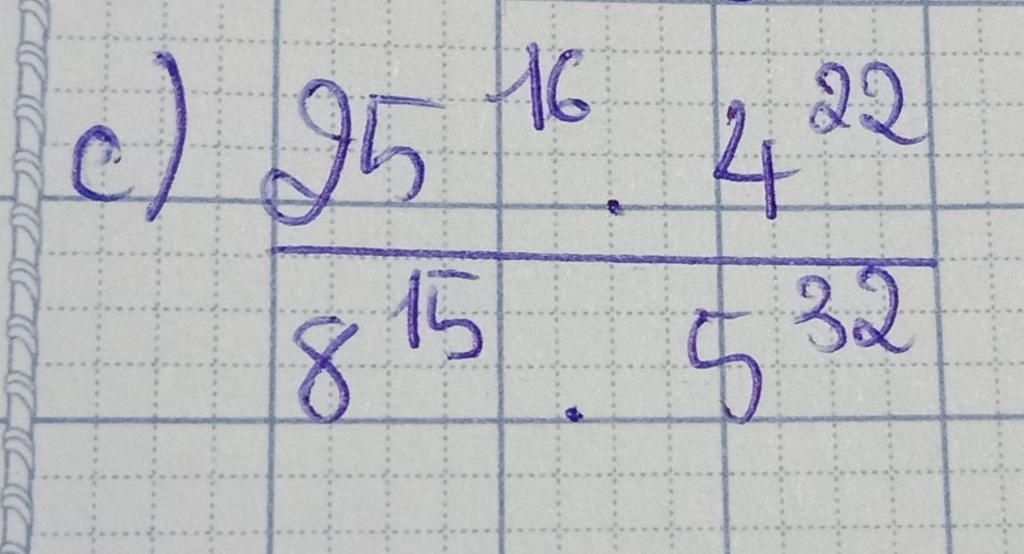 c) 25^16 . 4^22
8^15 . 5^32